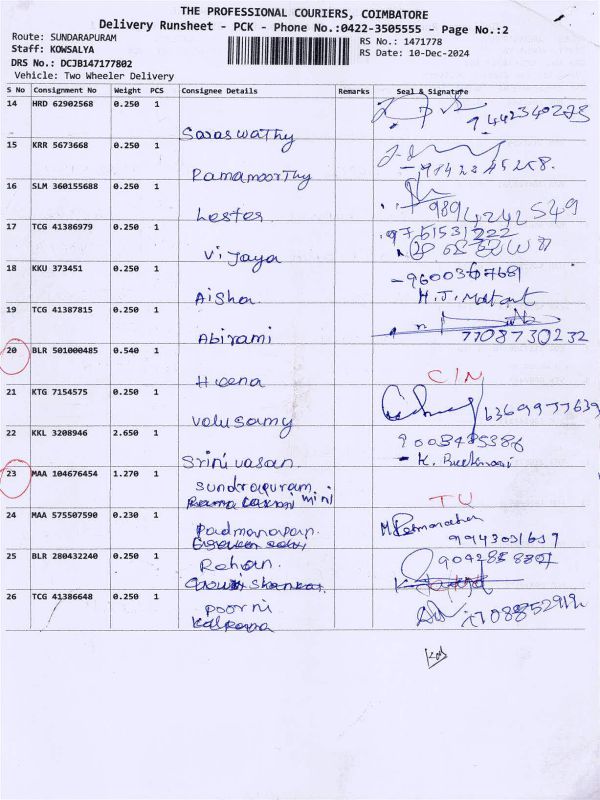 THE PROFESSIONAL COURIERS, COIMBATORE
Delivery Runsheet - PCK - Phone No.:0422-3505555 - Page No.:2
Route: SUNDARAPURAM
Staff: KOWSALYA
DRS No.: DCJB147177802
Vehicle: Two Wheeler Delivery
RS No.: 1471778
RS Date: 10-Dec-2024
S No Consignment No Weight PCS Consignee Details Remarks Seal & Signature
14 HRD 62902568 0.250 1
Saraswathy 9442340275
15 KRR 5673668 0.250 1
Ramamoorthy
16 SLM 360155688 0.250 1
Lester 9894242549
17 TCG 41386979 0.250 1
Vijaya 9751531222
18 KKU 373451 0.250 1
Aisha. 9600367681
19 TCG 41387815 0.250 1
Abirami 7708730232
20 BLR 501000485 0.540 1
Heena C/N
21 KTG 7154575 0.250 1
Velusamy 6369977639
22 KKL 3208946 2.650 1
Srinivasan. 9003485386
23 MAA 104676454 1.270 1
Sundrapuram.
24 MAA 575507590 0.230 1
Padmanapan. 9943031659
25 BLR 280432240 0.250 1
Rehan.
26 TCG 41386648 0.250 1
Poorni 7708852919
Kalpana